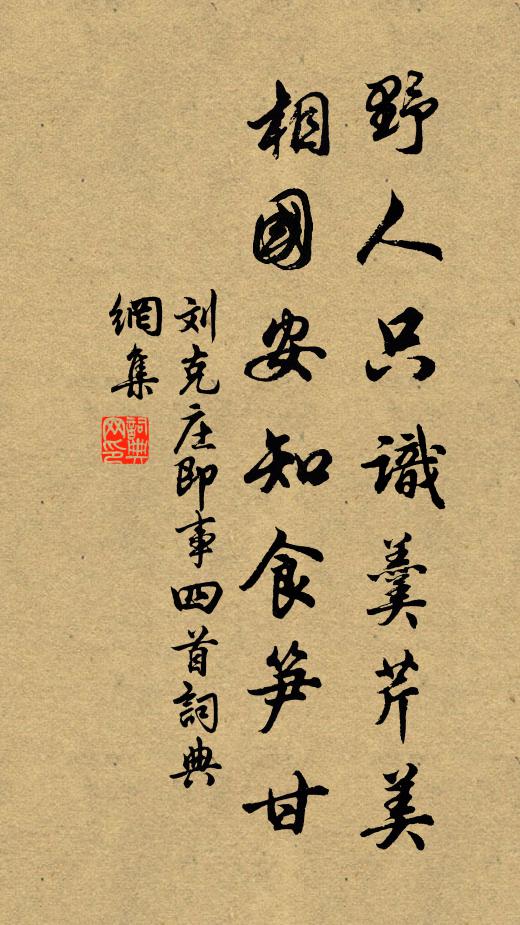 野人只識羹芹美
相國安知食笋甘
刘克庄即事四首詞典
網集
詞典
网印